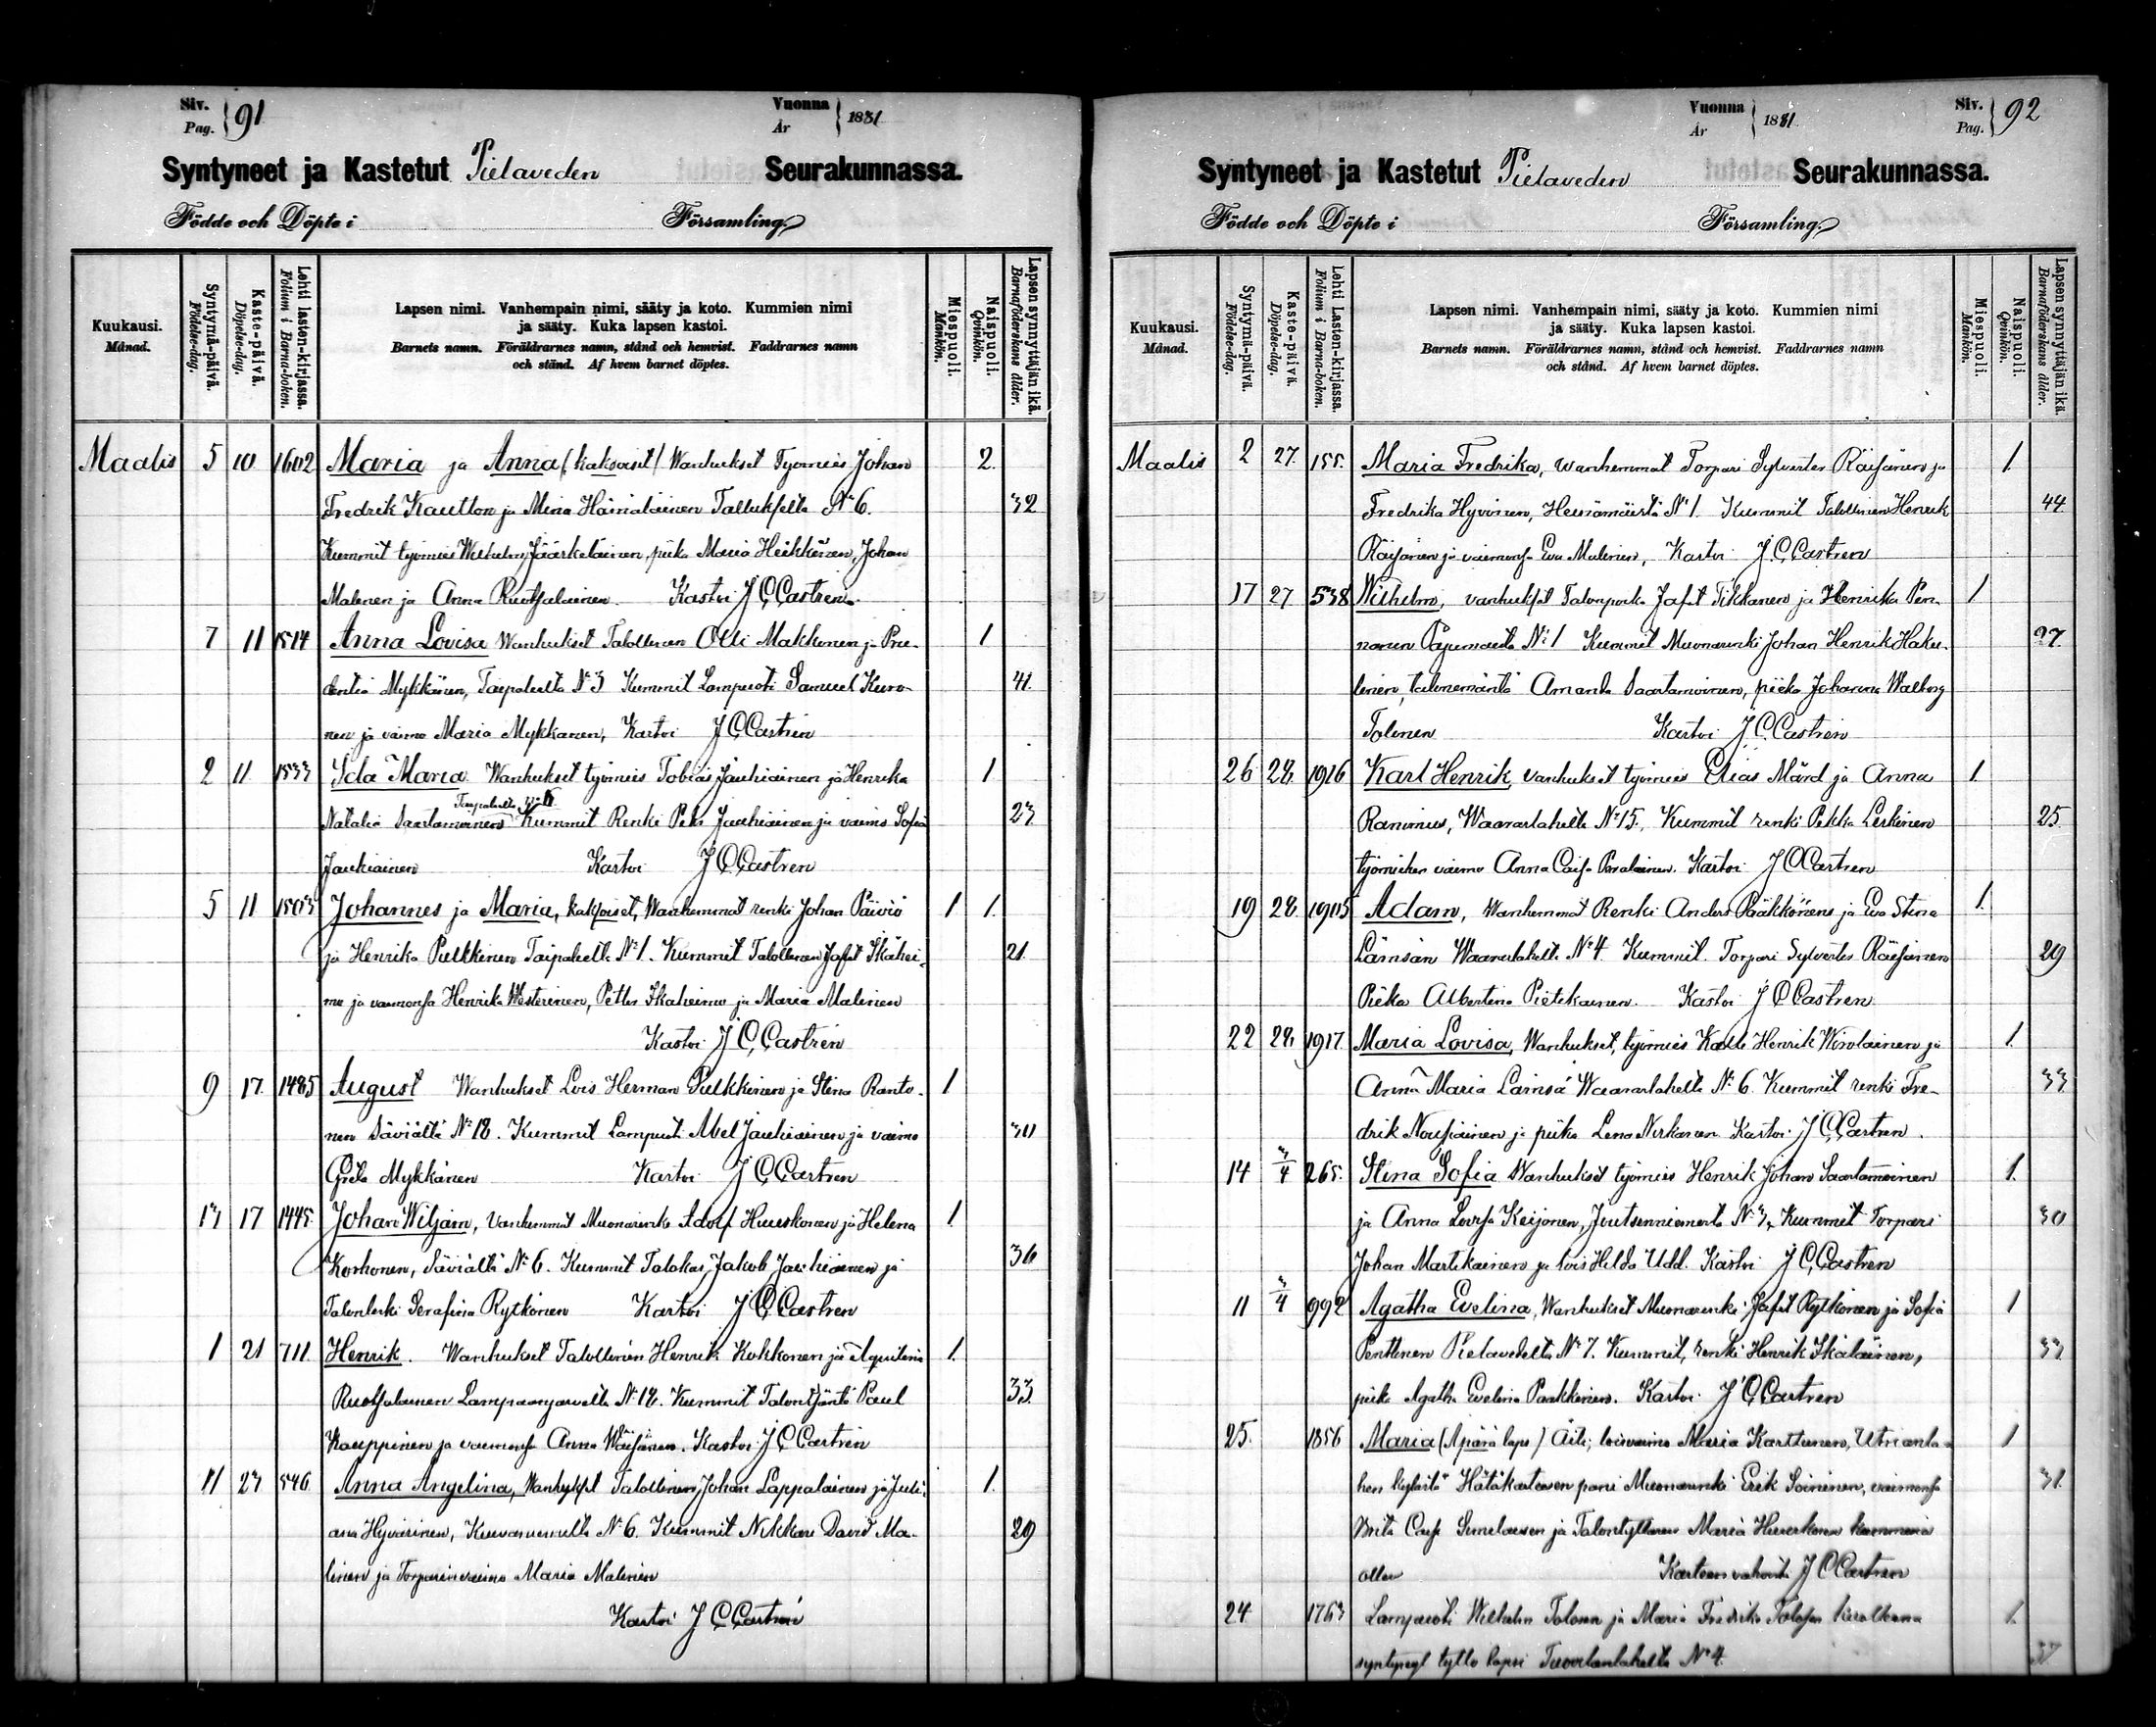 Siv.
Pag. 91
Vuonna
År 1881
Syntyneet ja Kastetut Pielaveden Seurakunnassa.
Födde och Döpte i Församling.
Kuukausi.
Månad.
Syntymä-päivä.
Födelse-dag.
Kaste-päivä.
Döpelse-dag.
Lehti lasten-kirjassa.
Folium i Barna-boken.
Lapsen nimi. Vanhempain nimi, sääty ja koto. Kummien nimi
ja sääty. Kuka lapsen kastoi.
Barnets namn. Föräldrarnes namn, stånd och hemvist. Faddrarnes namn
och stånd. Af hvem barnet döptes.
Miespuoli.
Mankön.
Naispuoli.
Qvinkön.
Lapsen synnyttäjän ikä.
Barnaföderskans ålder.
Maalis 5 10 1602 Maria ja Anna (kaksoiset) Wanhukset Työmies Johan 2.
Fredrik Kautton ja Mina Hämäläinen N:o 6. 32
Kummit työmies Wilhelm Jääskeläinen, piika Maria Heikkinen, Johan
Malinen ja Anna Ruotsalainen. Kastoi J C Castren.
7 11 1514 Anna Lovisa Wanhukset Talollinen Olli Makkonen ja Pru- 1
dentia Mykkänen, Taipaleelta N:o 3 Kummit Lampuoti Samuel Kuro- 41.
nen ja vaimo Maria Mykkänen, Kastoi J C Castren
2 11 1533 Ida Maria Wanhukset työmies Tobias Jauhiainen ja Henrika 1
Taipaleelta N:o 6
Natalia Saastamoinen Kummit Renki Petter Jauhiainen ja vaimo Sofia 23
Jauhiainen Kastoi J C Castren
5 11 1503 Johannes ja Maria, kaksoiset, Wanhemmat renki Johan Päiviö 1 1.
ja Henrika Pulkkinen Taipaleelta N:o 1. Kummit Talollinen Jafet Ikähei- 21.
mo ja vaimonsa Henrika Westerinen, Petter Ikäheimo ja Maria Malinen
Kastoi J C Castren
9 17 1485 August Wanhukset Lois Herman Pulkkinen ja Stina Ranto- 1
nen Säviältä N:o 18. Kummit Lampuoti Abel Jauhiainen ja vaimo 30
Greta Mykkänen Kastoi J C Castren
13 17 1445. Johan Wiljam, Vanhemmat Muonarenki Adolf Huuskonen ja Helena 1.
Korhonen, Säviältä N:o 6. Kummit Talokas Jakob Jauhiainen ja 36
Talonleski Serafina Rytkönen Kastoi J C Castren
1 21 711. Henrik. Wanhukset Talollinen Henrik Kokkonen ja 1.
Ruotsalainen Lampaanjärveltä N:o 18. Kummit Talonisäntä Paul 33
Kauppinen ja vaimonsa Anna Wäisänen. Kastoi J C Castren
11 23 546. Anna Angelina, Wanhukset Talollinen Johan Lappalainen ja Juli- 1.
ana Hyvärinen, N:o 6. Kummit Nikkari David Ma- 29
linen ja Torparinvaimo Maria Malinen
Kastoi J C Castren
Vuonna
År 1881.
Siv.
Pag. 92
Syntyneet ja Kastetut Pielaveden Seurakunnassa.
Födde och Döpte i Församling.
Kuukausi.
Månad.
Syntymä-päivä.
Födelse-dag.
Kaste-päivä.
Döpelse-dag.
Lehti Lasten-kirjassa.
Folium i Barna-boken.
Lapsen nimi. Vanhempain nimi, sääty ja koto. Kummien nimi
ja sääty. Kuka lapsen kastoi.
Barnets namn. Föräldrarnes namn, stånd och hemvist. Faddrarnes namn
och stånd. Af hvem barnet döptes.
Miespuoli.
Mankön.
Naispuoli.
Qvinkön.
Lapsen synnyttäjän ikä.
Barnaföderskans ålder.
Maalis 2 27. 155. Maria Fredrika, wanhemmat Torpari Sylvester Räisänen ja 1.
Fredrika Hyvönen, N:o 1 Kummit Talollinen Henrik 44
Räisänen ja vaimonsa Eva Malinen, Kastoi J C Castren
17 27 538 Wilhelm, vanhukset Talonpoika Jafet Tikkanen ja Henrika Pen- 1
nanen N:o 1 Kummit Muonarenki Johan Henrik Haku- 27.
linen, talonemäntä Amanda Saastamoinen, piika Johanna Walborg
Tolonen Kastoi J C Castren
26 28 1916 Karl Henrik, vanhukset työmies Elias Mård ja Anna 1.
Waaraslahelta N:o 15. Kummit renki Pekka Leskinen 25
työmiehen vaimo Anna Caisa Kastoi J C Castren
19 28. 1905 Adam, Wanhemmat Renki Anders Pääkkönen ja Eva Stina 1.
Lämsän Waaraslahelta N:o 4 Kummit. Torpari Sylvester Räisänen 29
Piika Albertina Pietikäinen. Kastoi J C Castren
22 28. 1917. Maria Lovisa, Wanhukset, työmies Kalle Henrik Wirolainen ja 1.
Anna Maria Lämsä Waaraslahelta N:o 6. Kummit renki Fre- 33
drik Nousiainen ja piika Lena Niskanen Kastoi J C Castren.
14 3/4 265. Stina Sofia Wanhukset työmies Henrik Johan Saastamoinen 1.
ja Anna Lovisa Keijonen, Joutsenniemeltä N:o 3, Kummit Torpari 30
Johan Martikainen ja lois Hilda Udd. Kastoi J C Castren
11 3/4 992 Agatha Evelina, Wanhukset Muonarenki Jafet Rytkönen ja Sofia 1
Penttinen Pielavedeltä N:o 7. Kummit, renki Henrik Ikäläinen, 33
piika Agatha Evelina Parkkinen. Kastoi J C Castren
25. 1856 Maria (Äpärä laps) Äiti; loisvaimo Maria Karttunen, 1
hen kylästä Hätäkasteesen pani Muonarenki Erik Soininen, vaimonsa 31.
Brita Caisa ja Talontyttären Maria kummina
ollen Kasteen vahvisti J C Castren
24 1763 Lampuoti Wilhelm Tolonen ja Maria Fredrika kuolleena 1.
syntynyt tyttö lapsi N:o 4.